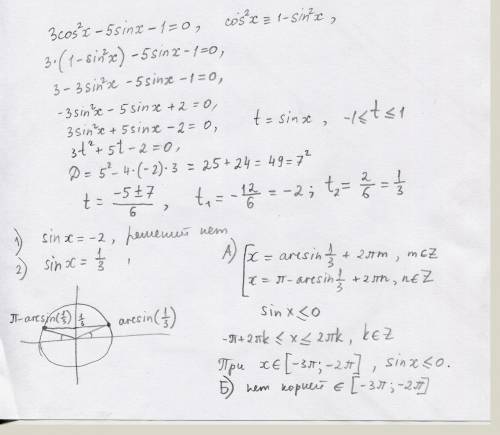 3cos²x - 5sinx - 1 = 0, cos²x ≡ 1 - sin²x,
3·(1 - sin²x) - 5sinx - 1 = 0,
3 - 3sin²x - 5sinx - 1 = 0,
-3sin²x - 5sinx + 2 = 0,
3sin²x + 5sinx - 2 = 0, t = sinx, -1 ≤ t ≤ 1
3t² + 5t - 2 = 0,
D = 5² - 4·(-2)·3 = 25 + 24 = 49 = 7²
t = (-5 ± 7)/6, t₁ = -12/6 = -2; t₂ = 2/6 = 1/3
1) sinx = -2, решений нет
2) sinx = 1/3,
А) [x = arcsin 1/3 + 2πm, m∈Z
x = π - arcsin 1/3 + 2πn, n∈Z
π-arcsin(1/3) 1/3 arcsin(1/3)
sinx ≤ 0
-π + 2πk ≤ x ≤ 2πk, k∈Z
При x∈[-3π; -2π], sinx ≤ 0.
Б) нет корней ∈ [-3π; -2π]